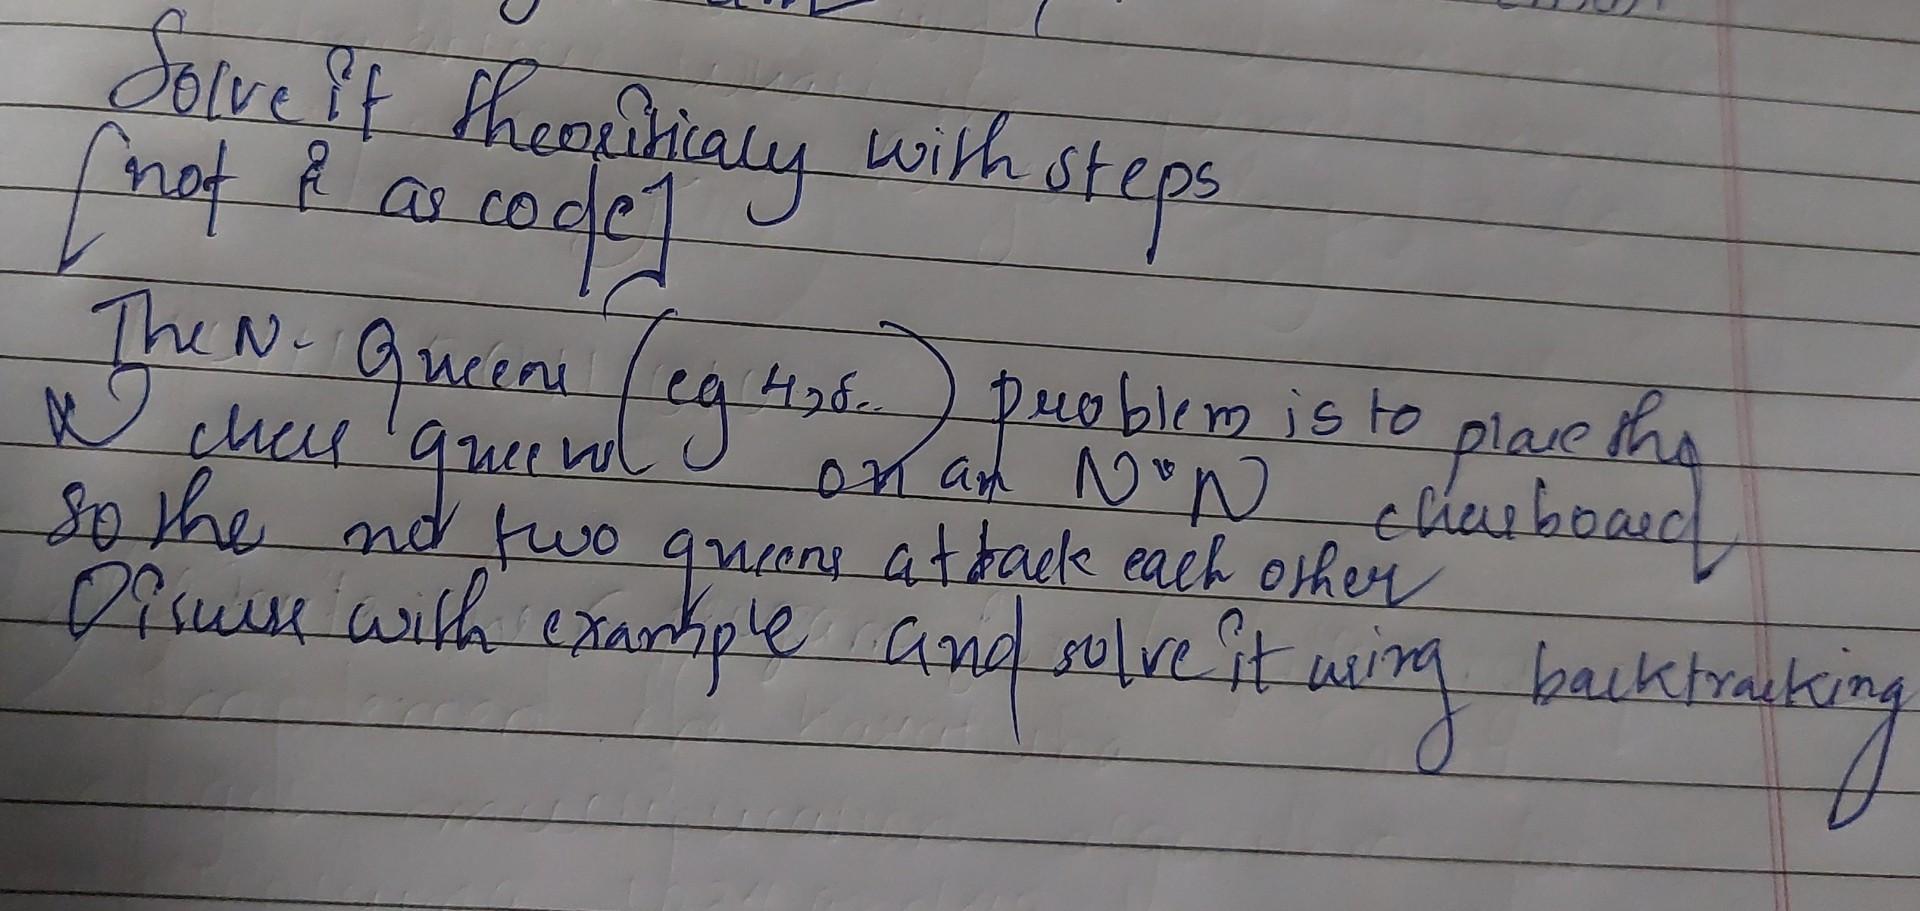 Solve it theoriticaly with steps
[not as code]
The N- Queens (eg 4,8..) problem is to place the
N chess queens on an N*N chessboard
so the no two queens attack each other
Discuss with example and solve it using backtracking